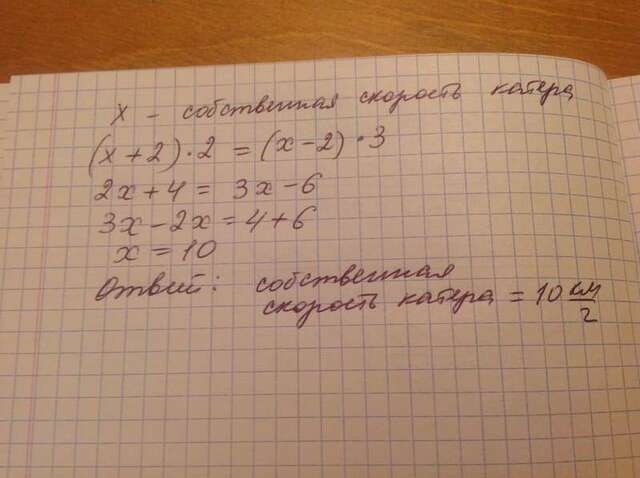 x - собственная скорость катера
(x+2)·2 = (x-2)·3
2x+4 = 3x-6
3x-2x=4+6
x=10
Ответ: собственная
скорость катера = 10 км/г